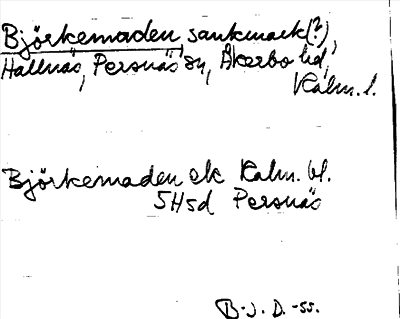 Björkemaden, sankmark(?),
Hallnäs, Persnäs sn, Åkerbo hd,
Kalm. l.
Björkemaden ek Kalm. bl.
5H5d Persnäs
B.J.D. -55.